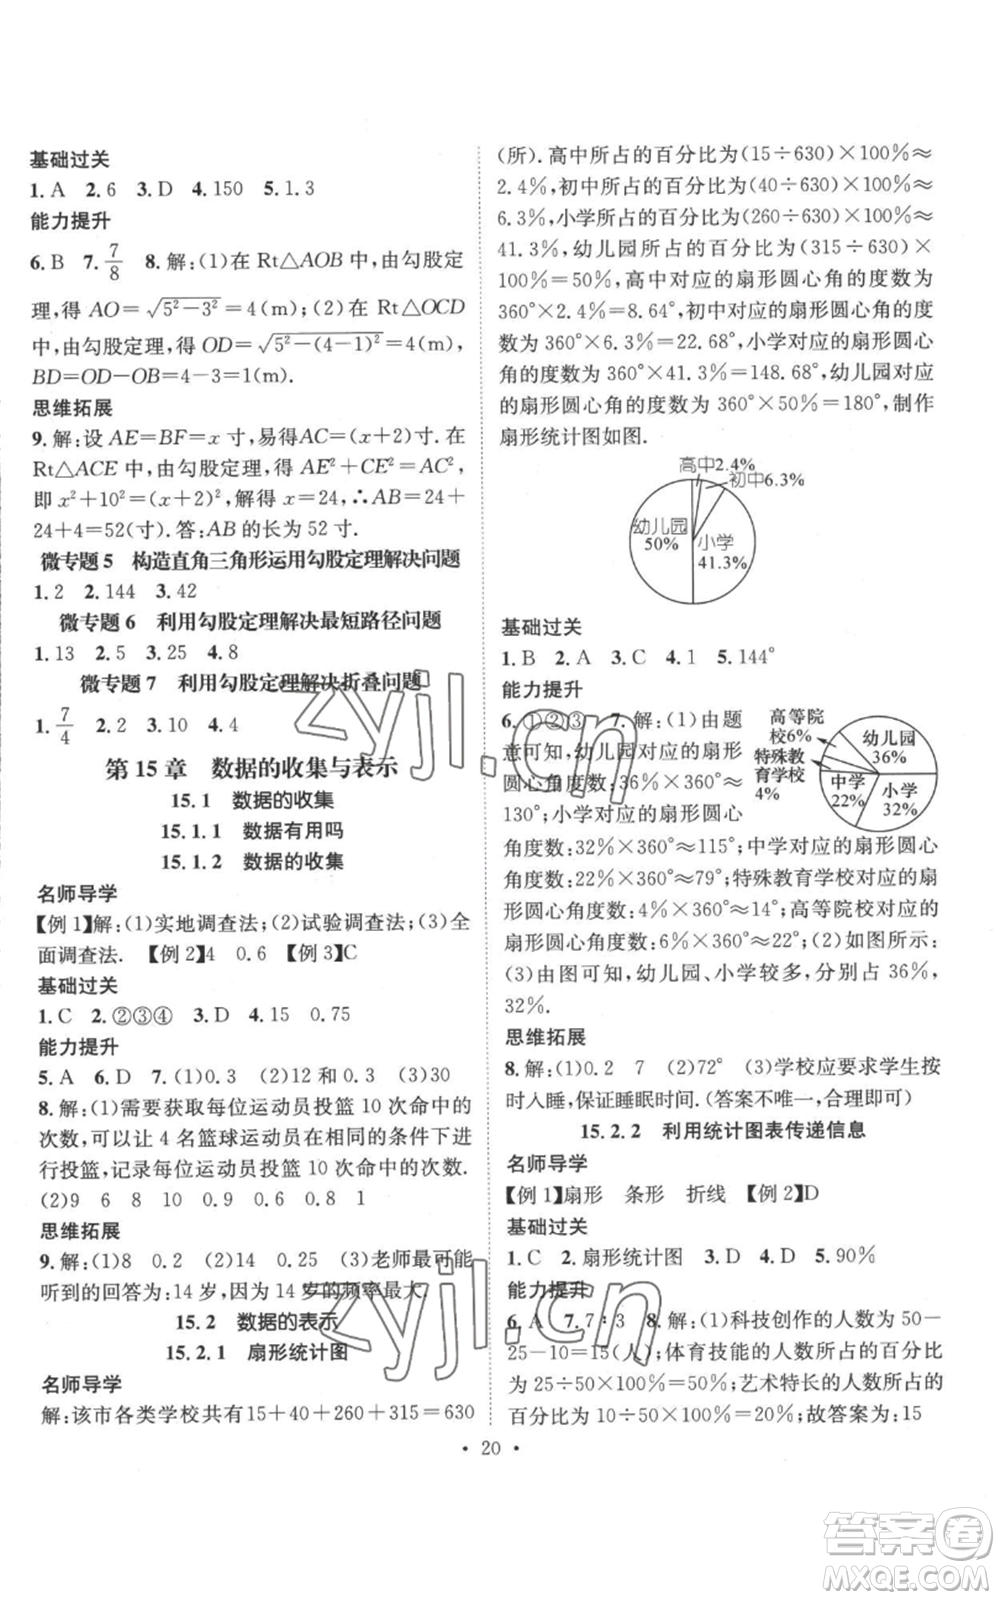 基础过关
1.A 2.6 3.D 4.150 5.1.3
能力提升
6.B 7.7/8 8.解:(1)在 Rt△AOB 中,由勾股定
理,得 AO=√(5²−3²)=4(m);(2)在 Rt△OCD
中,由勾股定理,得 OD=√(5²−(4−1)²)=4(m),
BD=OD−OB=4−3=1(m).
思维拓展
9.解:设 AE=BF=x 寸,易得AC=(x+2)寸.在
Rt△ACE 中,由勾股定理,得 AE²+CE²=AC²,
即 x²+10²=(x+2)²,解得 x=24,∴AB=24+
24+4=52(寸).答:AB 的长为 52 寸.
微专题 5 构造直角三角形运用勾股定理解决问题
1.2 2.144 3.42
微专题 6 利用勾股定理解决最短路径问题
1.13 2.5 3.25 4.8
微专题 7 利用勾股定理解决折叠问题
1.7/4 2.2 3.10 4.4
第 15 章 数据的收集与表示
15.1 数据的收集
15.1.1 数据有用吗
15.1.2 数据的收集
名师导学
【例 1】解:(1)实地调查法;(2)试验调查法;(3)全
面调查法. 【例 2】4 0.6 【例 3】C
基础过关
1.C 2.②③④ 3.D 4.15 0.75
能力提升
5.A 6.D 7.(1)0.3 (2)12 和 0.3 (3)30
8.解:(1)需要获取每位运动员投篮 10 次命中的
次数,可以让 4 名篮球运动员在相同的条件下进
行投篮,记录每位运动员投篮 10 次命中的次数.
(2)9 6 8 10 0.9 0.6 0.8 1
思维拓展
9.解:(1)8 0.2 (2)14 0.25 (3)老师最可能
听到的回答为:14 岁,因为 14 岁的频率最大.
15.2 数据的表示
15.2.1 扇形统计图
名师导学
解:该市各类学校共有15+40+260+315=630
(所).高中所占的百分比为(15÷630)×100%≈
2.4%,初中所占的百分比为(40÷630)×100%≈
6.3%,小学所占的百分比为(260÷630)×100%≈
41.3%,幼儿园所占的百分比为(315÷630)×
100%=50%,高中对应的扇形圆心角的度数为
360°×2.4%=8.64°,初中对应的扇形圆心角的度
数为 360°×6.3%=22.68°,小学对应的扇形圆心
角的度数为 360°×41.3%=148.68°,幼儿园对应
的扇形圆心角的度数为 360°×50%=180°,制作
扇形统计图如图.
高中2.4%
初中6.3%
幼儿园
50%
小学
41.3%
基础过关
1.B 2.A 3.C 4.1 5.144°
能力提升
6.①②③ 7.解:(1)由题
意可知,幼儿园对应的扇形
圆心角度数:36%×360°≈
130°;小学对应的扇形圆心
角度数:32%×360°≈115°;中学对应的扇形圆心
角度数:22%×360°≈79°;特殊教育学校对应的扇
形圆心角度数:4%×360°≈14°;高等院校对应的
扇形圆心角度数:6%×360°≈22°;(2)如图所示:
(3)由图可知,幼儿园、小学较多,分别占 36%,
32%.
高等院
校6%
特殊教
育学校
4%
幼儿园
36%
中学
22%
小学
32%
思维拓展
8.解:(1)0.2 7 (2)72° (3)学校应要求学生按
时入睡,保证睡眠时间.(答案不唯一,合理即可)
15.2.2 利用统计图表传递信息
名师导学
【例 1】扇形 条形 折线 【例 2】D
基础过关
1.C 2.扇形统计图 3.D 4.D 5.90%
能力提升
6.A 7.7∶3 8.解:(1)科技创作的人数为 50−
25−10=15(人);体育技能的人数所占的百分比
为 25÷50×100%=50%;艺术特长的人数所占的
百分比为 10÷50×100%=20%;故答案为:15
• 20 •
zyjl.cn
zyjl.cn
答案卷
MXQE.COM